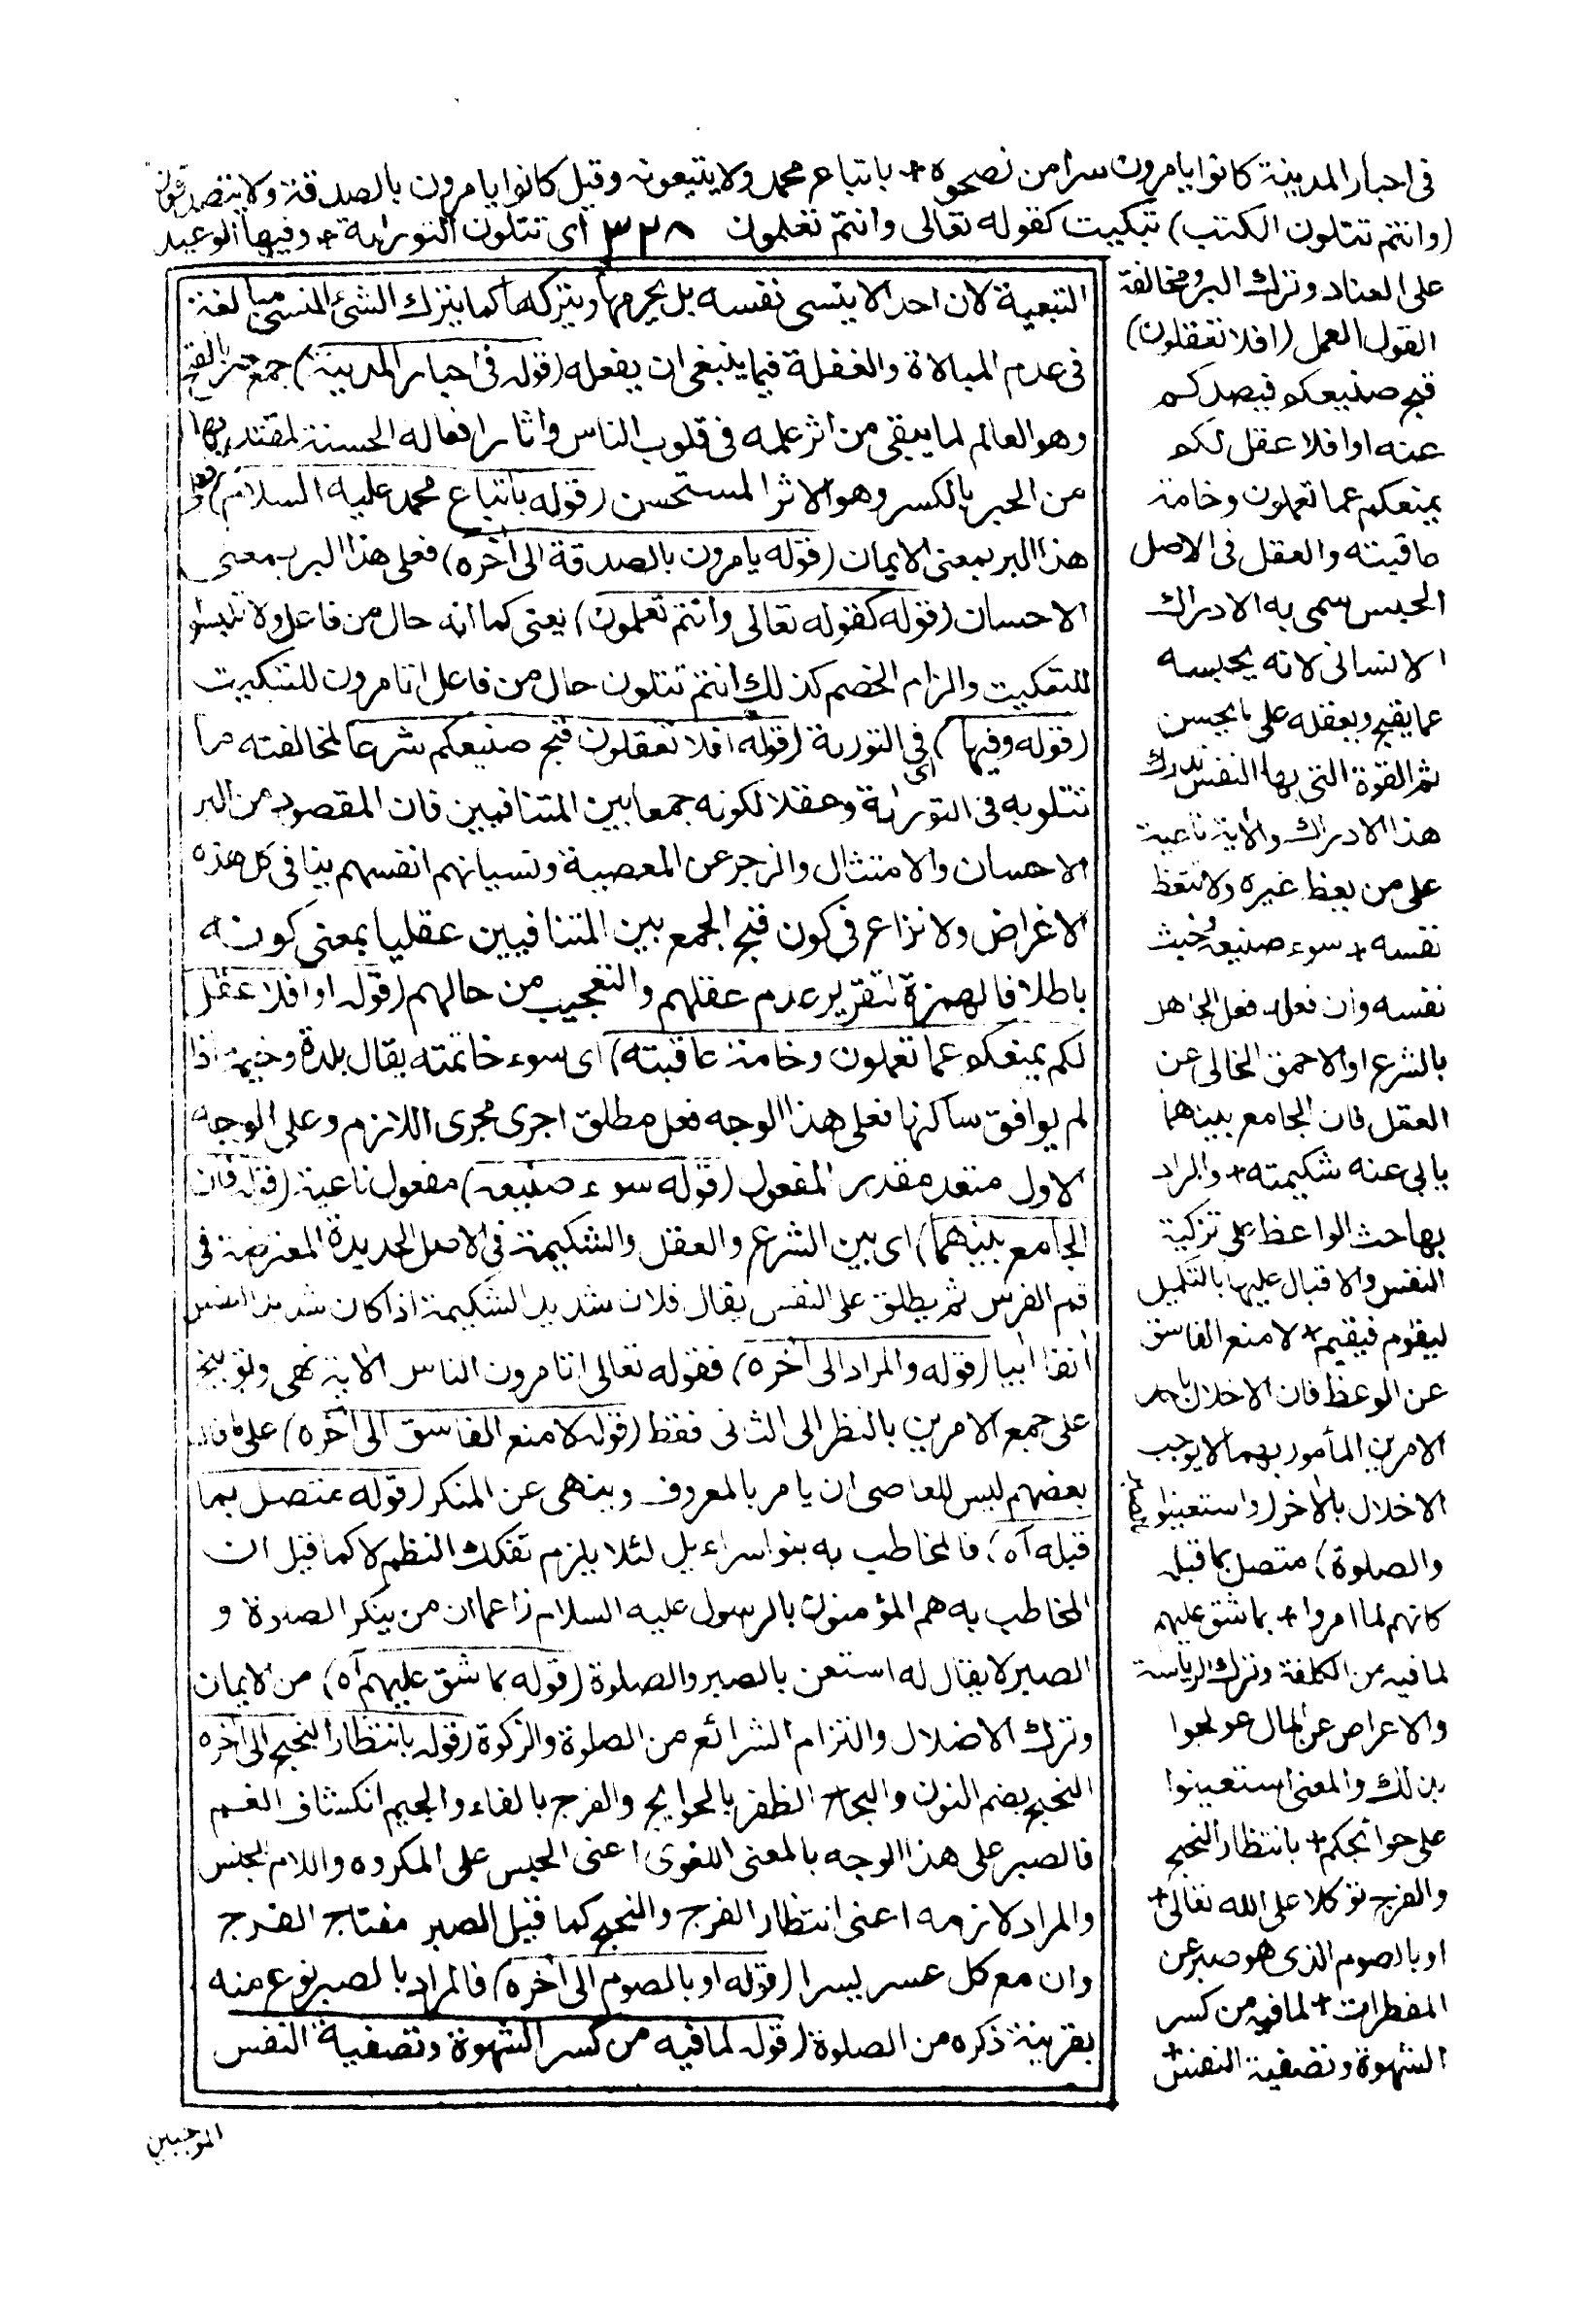 فى احبار المدينة كانوا يامرون سرا من نصحوه + باتباع محمد ولا يتبعونه وقيل كانوا يامرون بالصدقة ولا يتصدقون
(وانتم تتلون الكتب) تبكيت كقوله تعالى وانتم تعلمون ٣٢٨ اى تتلون التورية + وفيها الوعيد
على العناد وترك البر ومخالفة
القول العمل (افلا تعقلون)
قبح صنيعكم فيصدكم
عنه او افلا عقل لكم
يمنعكم عما تعملون وخامة
عاقبته والعقل فى الاصل
الحبس سمى به الادراك
الانسانى لانه يحبسه
عما يقبح ويعقله على ما يحسن
ثم القوة التى بها النفس تدرك
هذا الادراك والاية ناعية
على من يعظ غيره ولا يتعظ
نفسه + سوء صنيعه وخبث
نفسه وان فعله فعل الجاهل
بالشرع او الاحمق الخالى عن
العقل فان الجامع بينهما
يابى عنه شكيمته + والمراد
بها حث الواعظ على تزكية
النفس والاقبال عليها بالتكميل
ليقوم فيقيم + لا منع الفاسق
عن الوعظ فان الاخلال باحد
الامرين المأمور بهما لا يوجب
الاخلال بالاخر (واستعينوا بالصبر
والصلوة) متصل بما قبله
كانهم لما امروا + بما شق عليهم
لما فيه من الكلفة وترك الرياسة
والاعراض عن المال عولجوا
بذلك والمعنى استعينوا
على حوائجكم + بانتظار النجح
والفرج توكلا على الله تعالى +
او بالصوم الذى هو صبر عن
المفطرات + لما فيه من كسر
الشهوة وتصفية النفس +
التبعية لان احدا لا ينسى نفسه بل يحرمها ويتركها كما يترك الشئ المنسى مبالغة
فى عدم المبالاة والغفلة فيما ينبغى ان يفعله (قوله فى احبار المدينة) جمع حبر بالفتح
وهو العالم لما يبقى من اثر علمه فى قلوب الناس واثار افعاله الحسنة المقتدى بها
من الحبر بالكسر وهو الاثر المستحسن (قوله باتباع محمد عليه السلام) فعلى
هذا البر بمعنى الايمان (قوله يامرون بالصدقة الى اخره) فعلى هذا البر بمعنى
الاحسان (قوله كقوله تعالى وانتم تعلمون) يعنى كما انه حال من فاعل ولا تلبسوا
للتبكيت والزام الخصم كذلك انتم تتلون حال من فاعل اتامرون للتبكيت
(قوله وفيها) اى فى التورية (قوله افلا تعقلون قبح صنيعكم شرعا لمخالفته ما
تتلونه فى التورية وعقلا لكونه جمعا بين المتنافيين فان المقصود من البر
الاحسان والامتثال والزجر عن المعصية ونسيانهم انفسهم ينافى كل هذه
الاغراض ولا نزاع فى كون قبح الجمع بين المتنافيين عقليا بمعنى كونه
باطلا فالهمزة لتقرير عدم عقلهم والتعجيب من حالهم (قوله او افلا عقل
لكم يمنعكم عما تعملون وخامة عاقبته) اى سوء خاتمته يقال بلدة وخيمة اذا
لم يوافق ساكنها فعلى هذا الوجه فعل مطلق اجرى مجرى اللازم وعلى الوجه
الاول متعد مقدر المفعول (قوله سوء صنيعه) مفعول ناعية (قوله فان
الجامع بينهما) اى بين الشرع والعقل والشكيمة فى الاصل الحديدة المعترضة فى
فم الفرس ثم يطلق على النفس يقال فلان شديد الشكيمة اذا كان شديد النفس
انفا ابيا (قوله والمراد الى اخره) فقوله تعالى اتامرون الناس الاية نهى وتوبيخ
على جمع الامرين بالنظر الى الثانى فقط (قوله لا منع الفاسق الى اخره) على ما قاله
بعضهم ليس للعاصى ان يامر بالمعروف وينهى عن المنكر (قوله متصل بما
قبله آه) فالمخاطب به بنو اسراءيل لئلا يلزم تفكك النظم لا كما قيل ان
المخاطب به هم المؤمنون بالرسول عليه السلام زاعما ان من ينكر الصلوة و
الصبر لا يقال له استعن بالصبر والصلوة (قوله بما شق عليهم آه) من الايمان
وترك الاضلال والتزام الشرائع من الصلوة والزكوة (قوله بانتظار النجح الى اخره
النجح بضم النون والنجاح الظفر بالحوايج والفرج بالفاء والجيم انكشاف الغم
فالصبر على هذا الوجه بالمعنى اللغوى اعنى الحبس على المكروه واللام للجنس
والمراد لازمه اعنى انتظار الفرج والنجح كما قيل الصبر مفتاح الفرج
وان مع كل عسر يسرا (قوله او بالصوم الى اخره) فالمراد بالصبر نوع منه
بقرينة ذكره من الصلوة (قوله لما فيه من كسر الشهوة وتصفية النفس
الموجبين